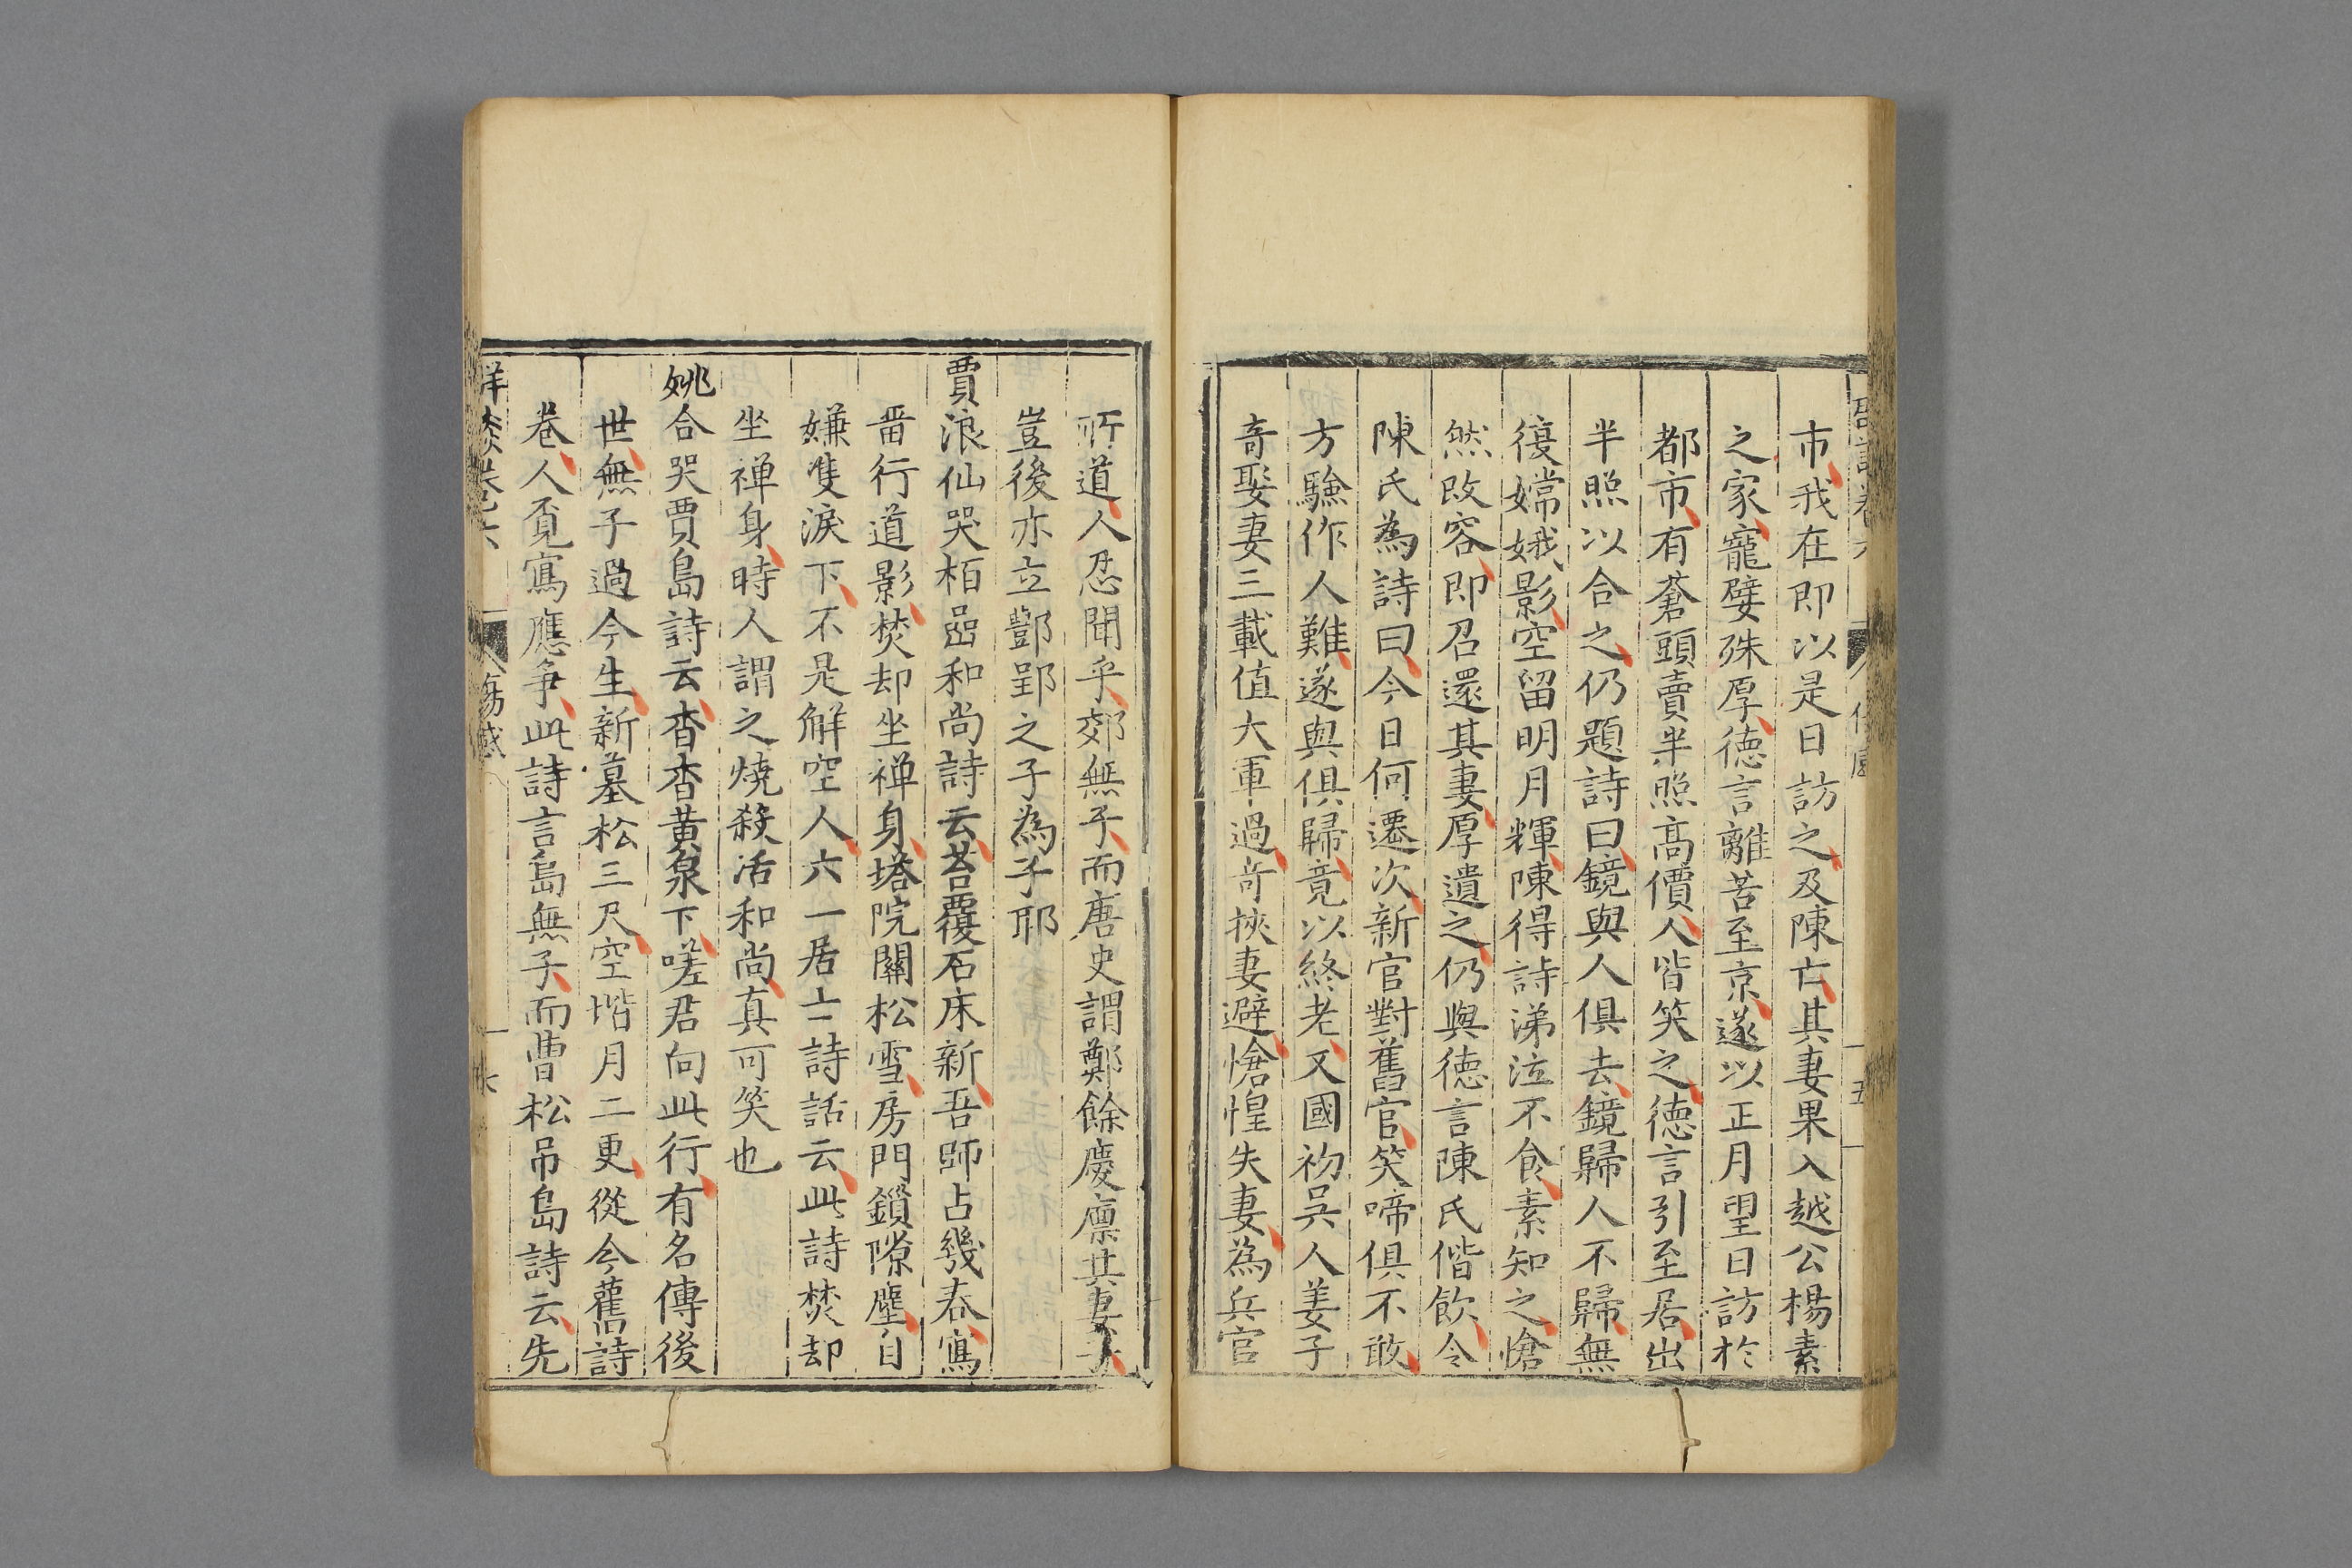 市我在即以是日訪之及陳亡其妻果入越公楊素
之家寵嬖殊厚德言離苦至京遂以正月望日訪於
都市有蒼頭賣半照高價人皆笑之德言引至居出
半照以合之仍題詩曰鏡與人俱去鏡歸人不歸無
復嫦娥影空留明月輝陳得詩涕泣不食素知之愴
然改容即召還其妻厚遺之仍與德言陳氏偕飲令
陳氏為詩曰今日何遷次新官對舊官笑啼俱不敢
方驗作人難遂與俱歸竟以終老又國初吳人姜子
奇娶妻三載值大軍過奇挾妻避愴惶失妻為兵官
所道人忍聞乎郊無子而唐史謂鄭餘慶廩其妻子
豈後亦立酆郢之子為子耶
賈浪仙哭栢嵓和尚詩云苔覆石床新吾師占幾春寫
畱行道影焚却坐禅身塔院關松雪房門鎖隙塵自
嫌隻淚下不是解空人六一居士詩話云此詩焚却
坐禅身時人謂之燒殺活和尚真可笑也
姚合哭賈島詩云杳杳黃泉下嗟君向此行有名傳後
世無子過今生新墓松三尺空堦月二更從今舊詩
卷人覔寫應争此詩言島無子而曹松吊島詩云先
傷感